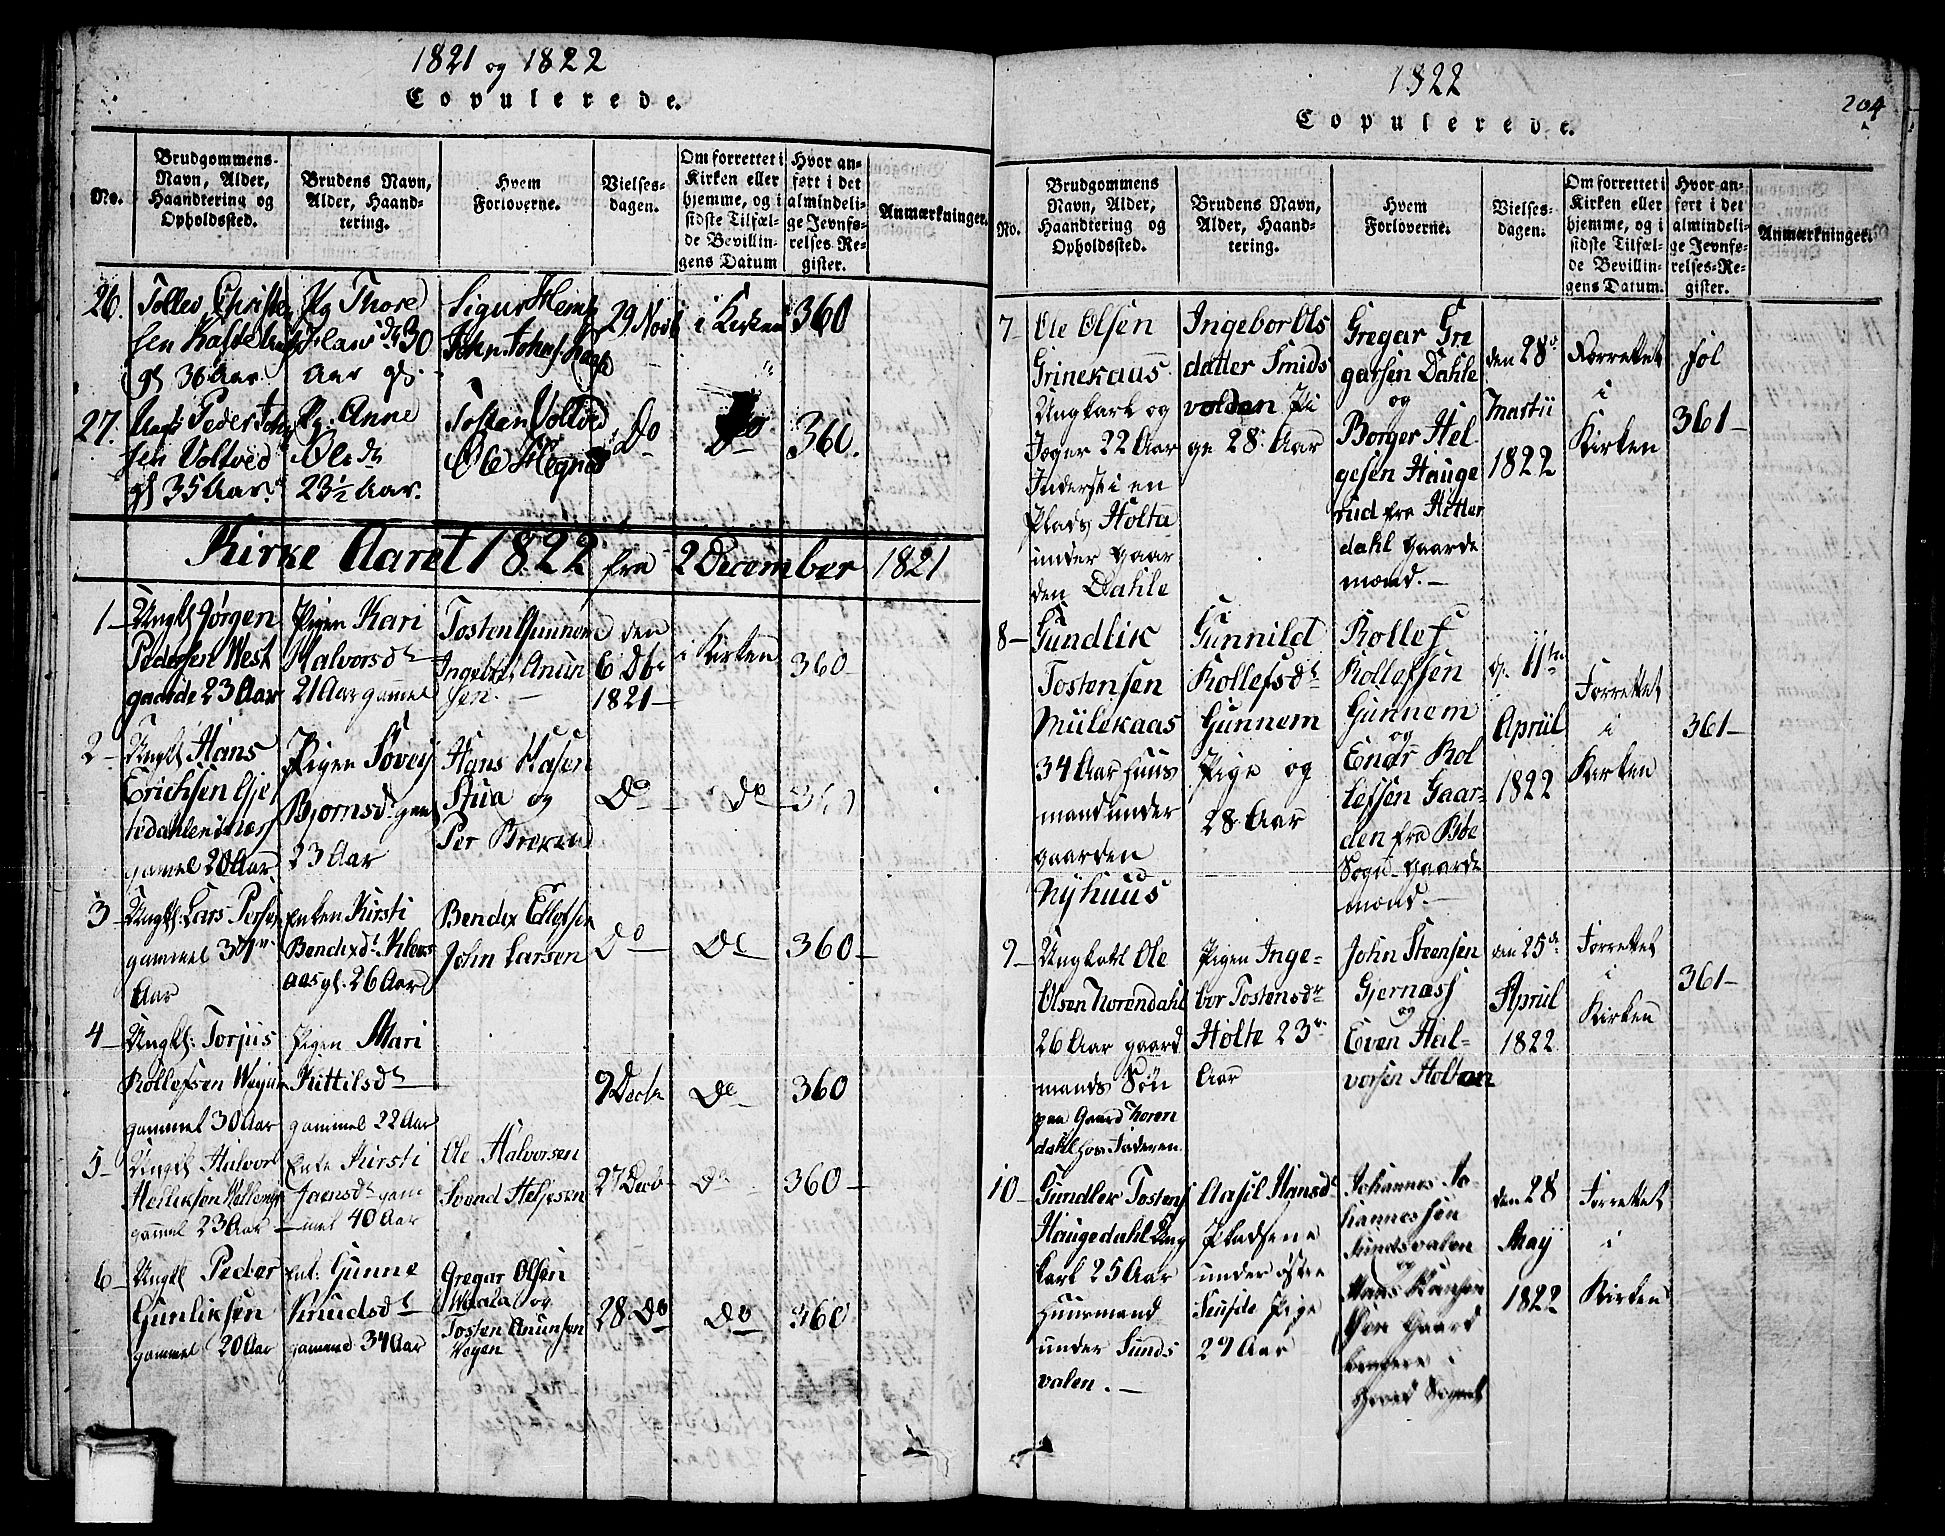 1821 og 1822
Copulerede.
No.
Brudgommens-
Navn, Alder,
Haandtering og
Opholdssted.
Brudens Navn,
Alder, Haand-
tering.
Hvem
Forloverne.
Vielses-
dagen.
Om forrettet i
Kirken eller
hjemme, og i
sidste Tilfæl-
de Bevillin-
gens Datum
Hvor an-
ført i det
almindeli-
ge Jevnfø-
relses-Re-
gister.
Anmærkninger.
26.
Tollev Christen
sen
gl 36 Aar
Pg Thore
30
Aar gl.
29 Novb
i Kirken
360
27.
Ungk Peder
sen Voltved
gl 35 Aar.
Pg. Anne
Ole dr
23½ Aar.
Tosten Voltved
Ole Hegna
Do
Do
360.
Kirke Aaret 1822 fra 2 December 1821
1
Ungk Jørgen
Pedersen West
gaarde 23 Aar
Pigen Kari
Halvorsdr
21 Aar gammel
Tosten Gunnem
Ingebr. Anun
sen.
den
6 Dbr
1821
i Kirken
360
2
Ungk Hans
Erichsen
gammel 20 Aar
Pigen Sovej
Bjørnsdr gam
23 Aar
Hans
Stua og
Per
Do
Do
360
3
Ungk. Lars Persen
gammel
Aar
Enken Kirsti
Bendixdr
aas gl. 26 Aar
Bendix Ellefsen
John Larsen
Do
Do
360
4
Ungk. Torjus
Rollefsen
gammel 30 Aar
Pigen Mari
Kittilsdr
gammel 22 Aar
9 Decbr
Do
360
5
Ungk Halvor
gammel 23 Aar
Enke Kirsti
Jaensdr gam
mel 40 Aar
Ole Halvorsen
Svend Heljesen
27 Decb
Do
360
6
Ungk Peder
Gunliksen
gammel 20 Aar
Enk: Gunne
Knudsdr
gammel 34 Aar
Gregar Olsen
og
Tosten Anunsen
Vegen
28 Do
Do
360
1822
204
Copulerede.
No.
Brudgommens
Navn, Alder,
Haandtering og
Opholdssted.
Brudens Navn,
Alder, Haand-
tering.
Hvem
Forloverne.
Vielses-
dagen.
Om forrettet i
Kirken eller
hjemme, og i
sidste Tilfæl-
de Bevillin-
gens Datum.
Hvor an-
ført i det
almindeli-
ge Jevnfø-
relses-Re-
gister.
Anmærkninger.
7
Ole Olsen
Grinekaas
Ungkarl og
Jæger 22 Aar
Inderst i en
Plads Holta
under gaar
den Dahle
Ingebor Ols
datter Smids
volden Pi
ge 28 Aar
Gregar Gre
garsen Dahle
og
Borger Hel
gesen Hauge
rud fra Hitter
dahl gaarde
mænd.
den 28de
Martii
1822
Forrettet
i
Kirken
fol
361
8
Gundlik
Tostensen
Mulekaas
34 Aar huus
mand under
gaarden
Nyhuus
Gunnild
Rollefsdr
Gunnem
Pige og
28 Aar
Rollef
Rollefsen
Gunnem
og
Enar Rol
lefsen Gaar-
den fra Bøe
Sogn gaarde
mænd.
11te
Apriil
1822
Forrettet
i
Kirken
361
9
Ungkarl Ole
Olsen Norendahl
26 Aar gaard
mands Søn
paa Gaard Noren
dahl hos Faderen
Pigen Inge-
bor Tostensdr
Holte 23
Aar
John Steensen
Gjernæss
og
Even Hal-
vorsen Holtan
den 25de
Apriil
1822
Forrettet
i
Kirken
361
10
Gundlek Tostens
Haugedahl Ung
karl 25 Aar
huusmand
under Sunds
valen.
Aasil Hansdr
Pladsene
under østre
Seuside Pige
27 Aar
Johannes Jo-
hannessen
Sundsvalen
og
Hans Hansen
Gaard
den 28
May
1822
Forrettet
i
Kirken